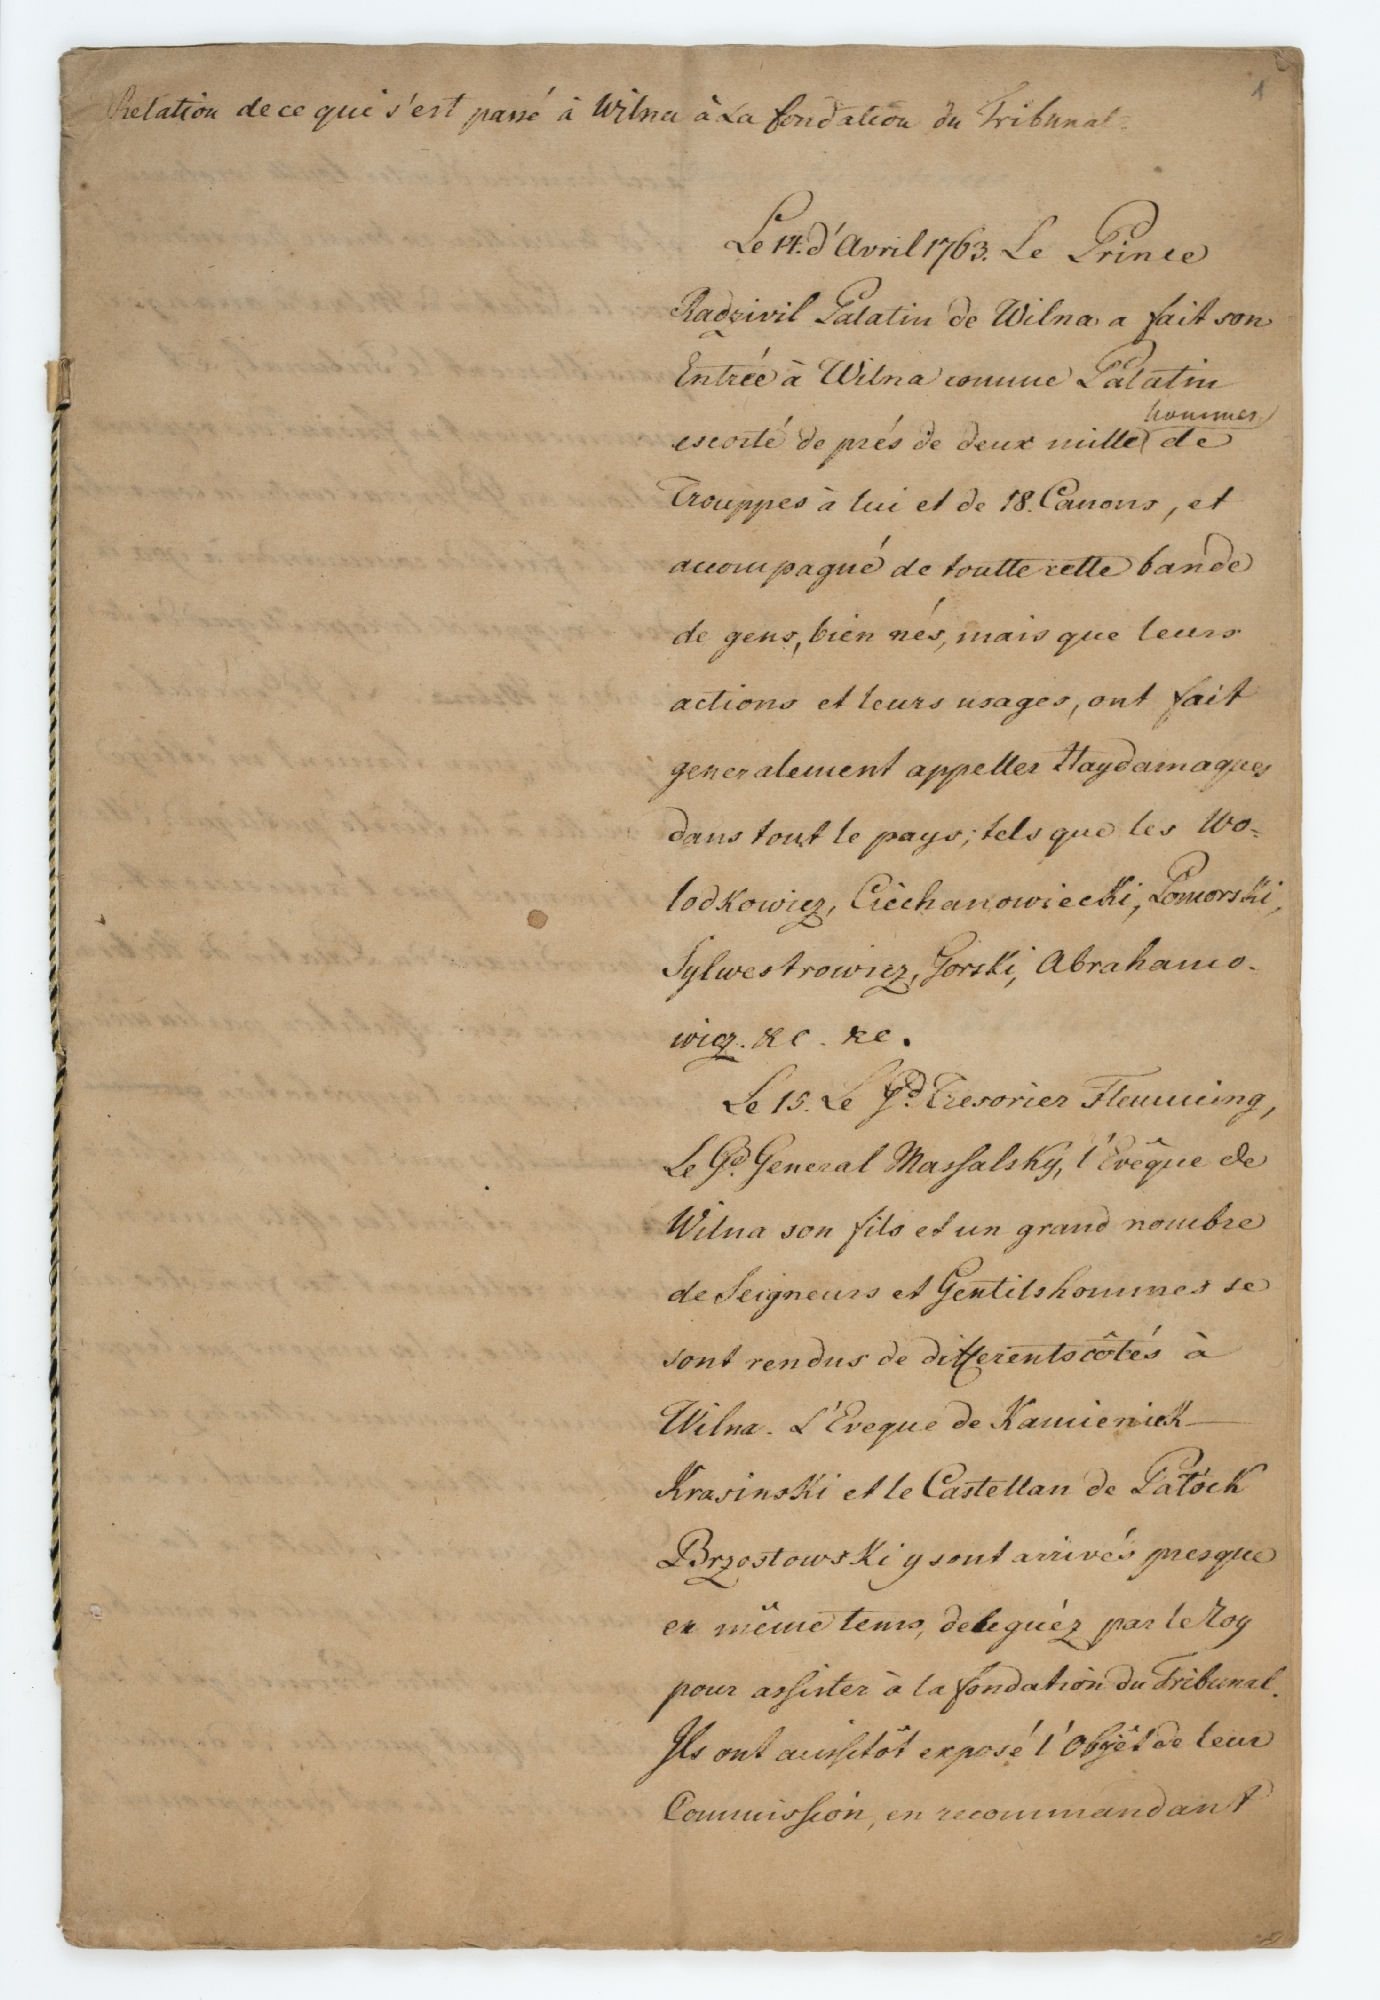 1
Relation de ce qui s'est passé à Wilna à La fondation du Tribunal.
Le 14. d'Avril 1763. Le Prince
Radzivil Palatin de Wilna a fait son
Entrée à Wilna comme Palatin
hommes
escorté de prés de deux mille de
Trouppes à lui et de 18. Canons, et
accompagné de toutte cette bande
de gens, bien nés, mais que leurs
actions et leurs usages, ont fait
generalement appeller Haydamaques
dans tout le pays; tels que les Wo-
lodkowicz, Ciechanowiecki, Pomorski,
Sylwestrowicz, Gorski, Abrahamo-
wicz. &c. &c.
Le 15. Le Gd. Tresorier Flemming,
Le Gd. General Massalsky, l'Evêque de
Wilna son fils et un grand nombre
de Seigneurs et Gentilshommes se
sont rendus de differents côtés à
Wilna. L'Eveque de Kamieniek
Krasinski et le Castellan de Patock
Brzostowski y sont arrivés presque
en même tems, deleguéz par le Roy
pour assister à la fondation du Tribunal.
Ils ont aussitôt exposé l'Objêt de leur
Commission, en recommandant